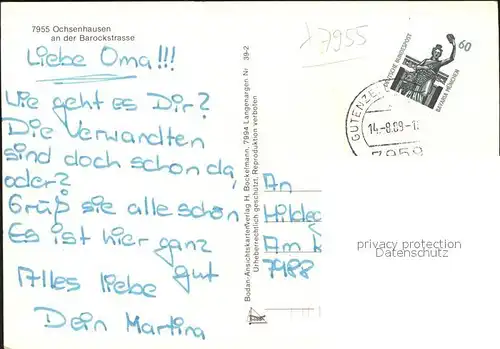 7955 Ochsenhausen
an der Barockstrasse
Liebe Oma!!!
Wie geht es Dir?
Die Verwandten
sind doch schon da,
oder?
Grüß sie alle schön
Es ist hier ganz
gut
Alles Liebe
Dein Martina
Bodan-Ansichtskartenverlag H. Bockelmann, 7994 Langenargen Nr. 39-2
Urheberrechtlich geschützt, Reproduktion verboten
7955
60
DEUTSCHE BUNDESPOST
BAVARIA MÜNCHEN
GUTENZE
14.-8.89-1
7959
An
Hildeg
Am
7988
privacy protection
Datenschutz